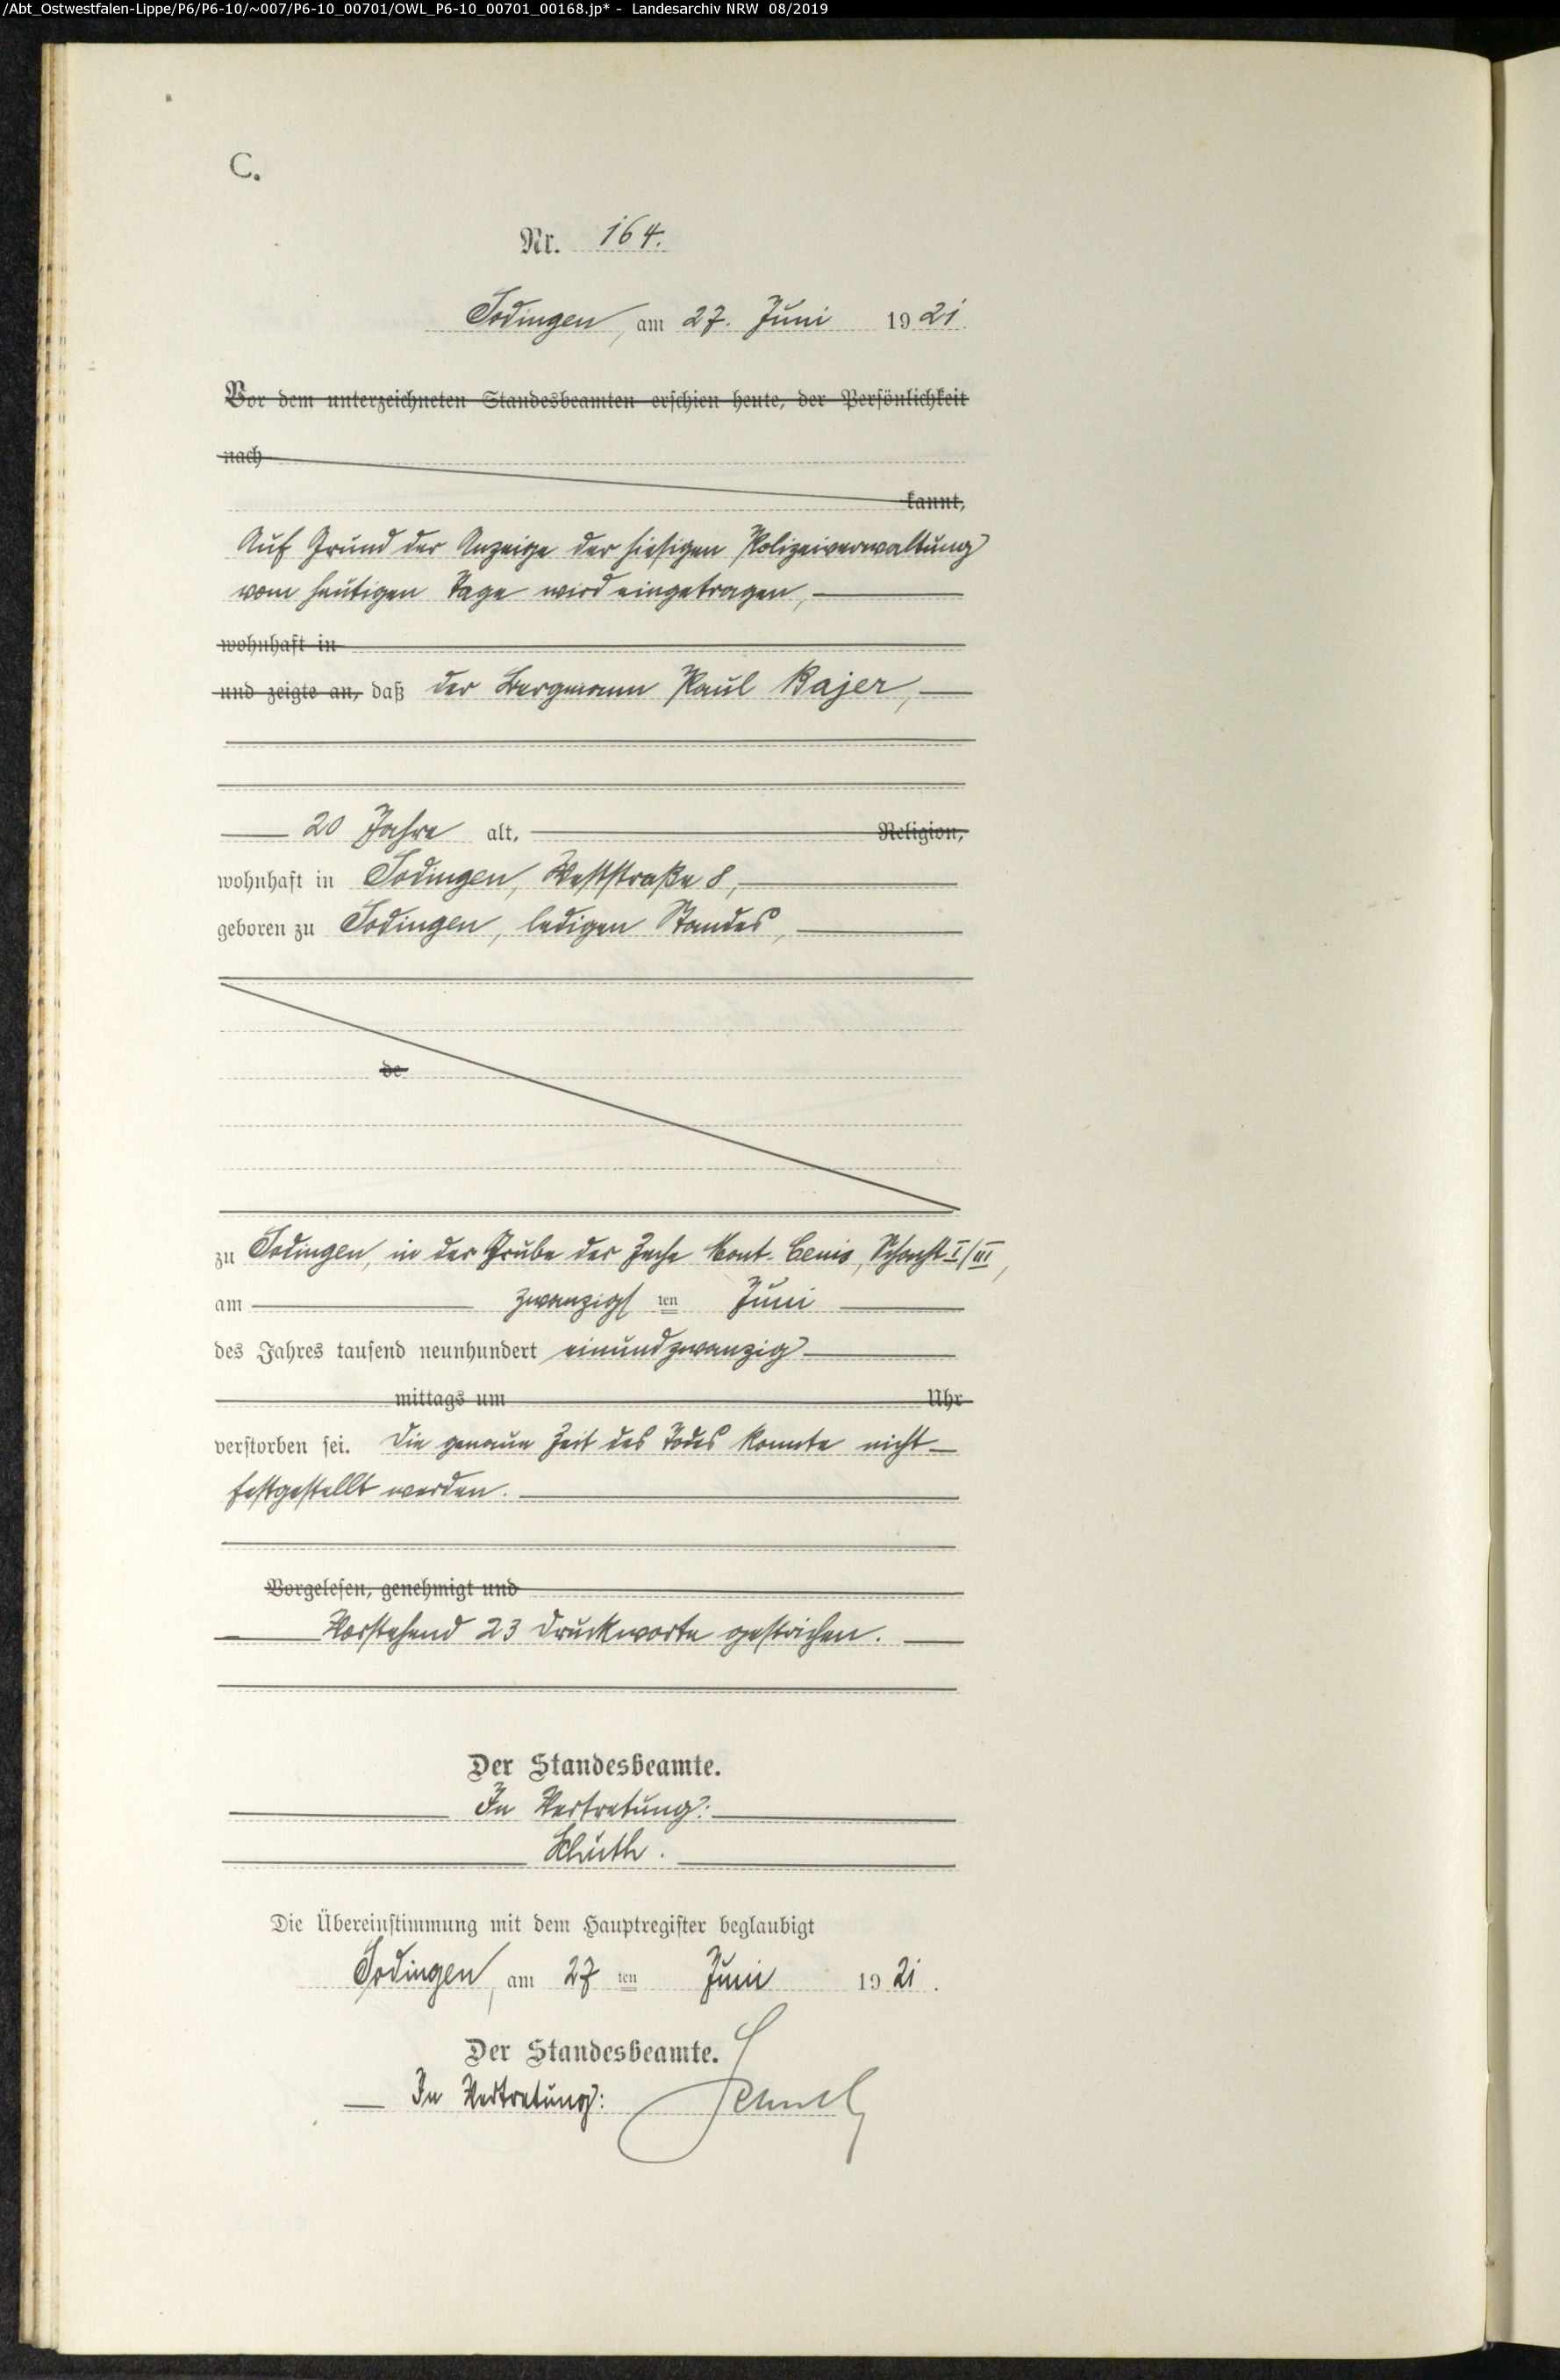 /Abt_Ostwestfalen-Lippe/P6/P6-10/~007/P6-10_00701/OWL_P6-10_00701_00168.jp* - Landesarchiv NRW 08/2019
C.
Nr. 164.
Sodingen, am 27. Juni 1921.
Vor dem unterzeichneten Standesbeamten erschien heute, der Persönlichkeit
nach
kannt,
Auf Grund der Anzeige der hiesigen Polizeiverwaltung
vom heutigen Tage wird eingetragen,
wohnhaft in
und zeigte an, daß der Bergmann Paul Bajer,
20 Jahre alt, Religion,
wohnhaft in Sodingen, Weststraße 8,
geboren zu Sodingen, ledigen Standes,
de
zu Sodingen, in der Grube der Zeche Mont-Cenis, Schacht I/III,
am zwanzigsten Juni
des Jahres tausend neunhundert einundzwanzig
mittags um Uhr
verstorben sei. Die genaue Zeit des Todes konnte nicht
festgestellt werden.
Vorgelesen, genehmigt und
Vorstehend 23 Druckworte gestrichen.
Der Standesbeamte.
In Vertretung:
Die Übereinstimmung mit dem Hauptregister beglaubigt
Sodingen, am 27ten Juni 1921.
Der Standesbeamte.
In Vertretung: